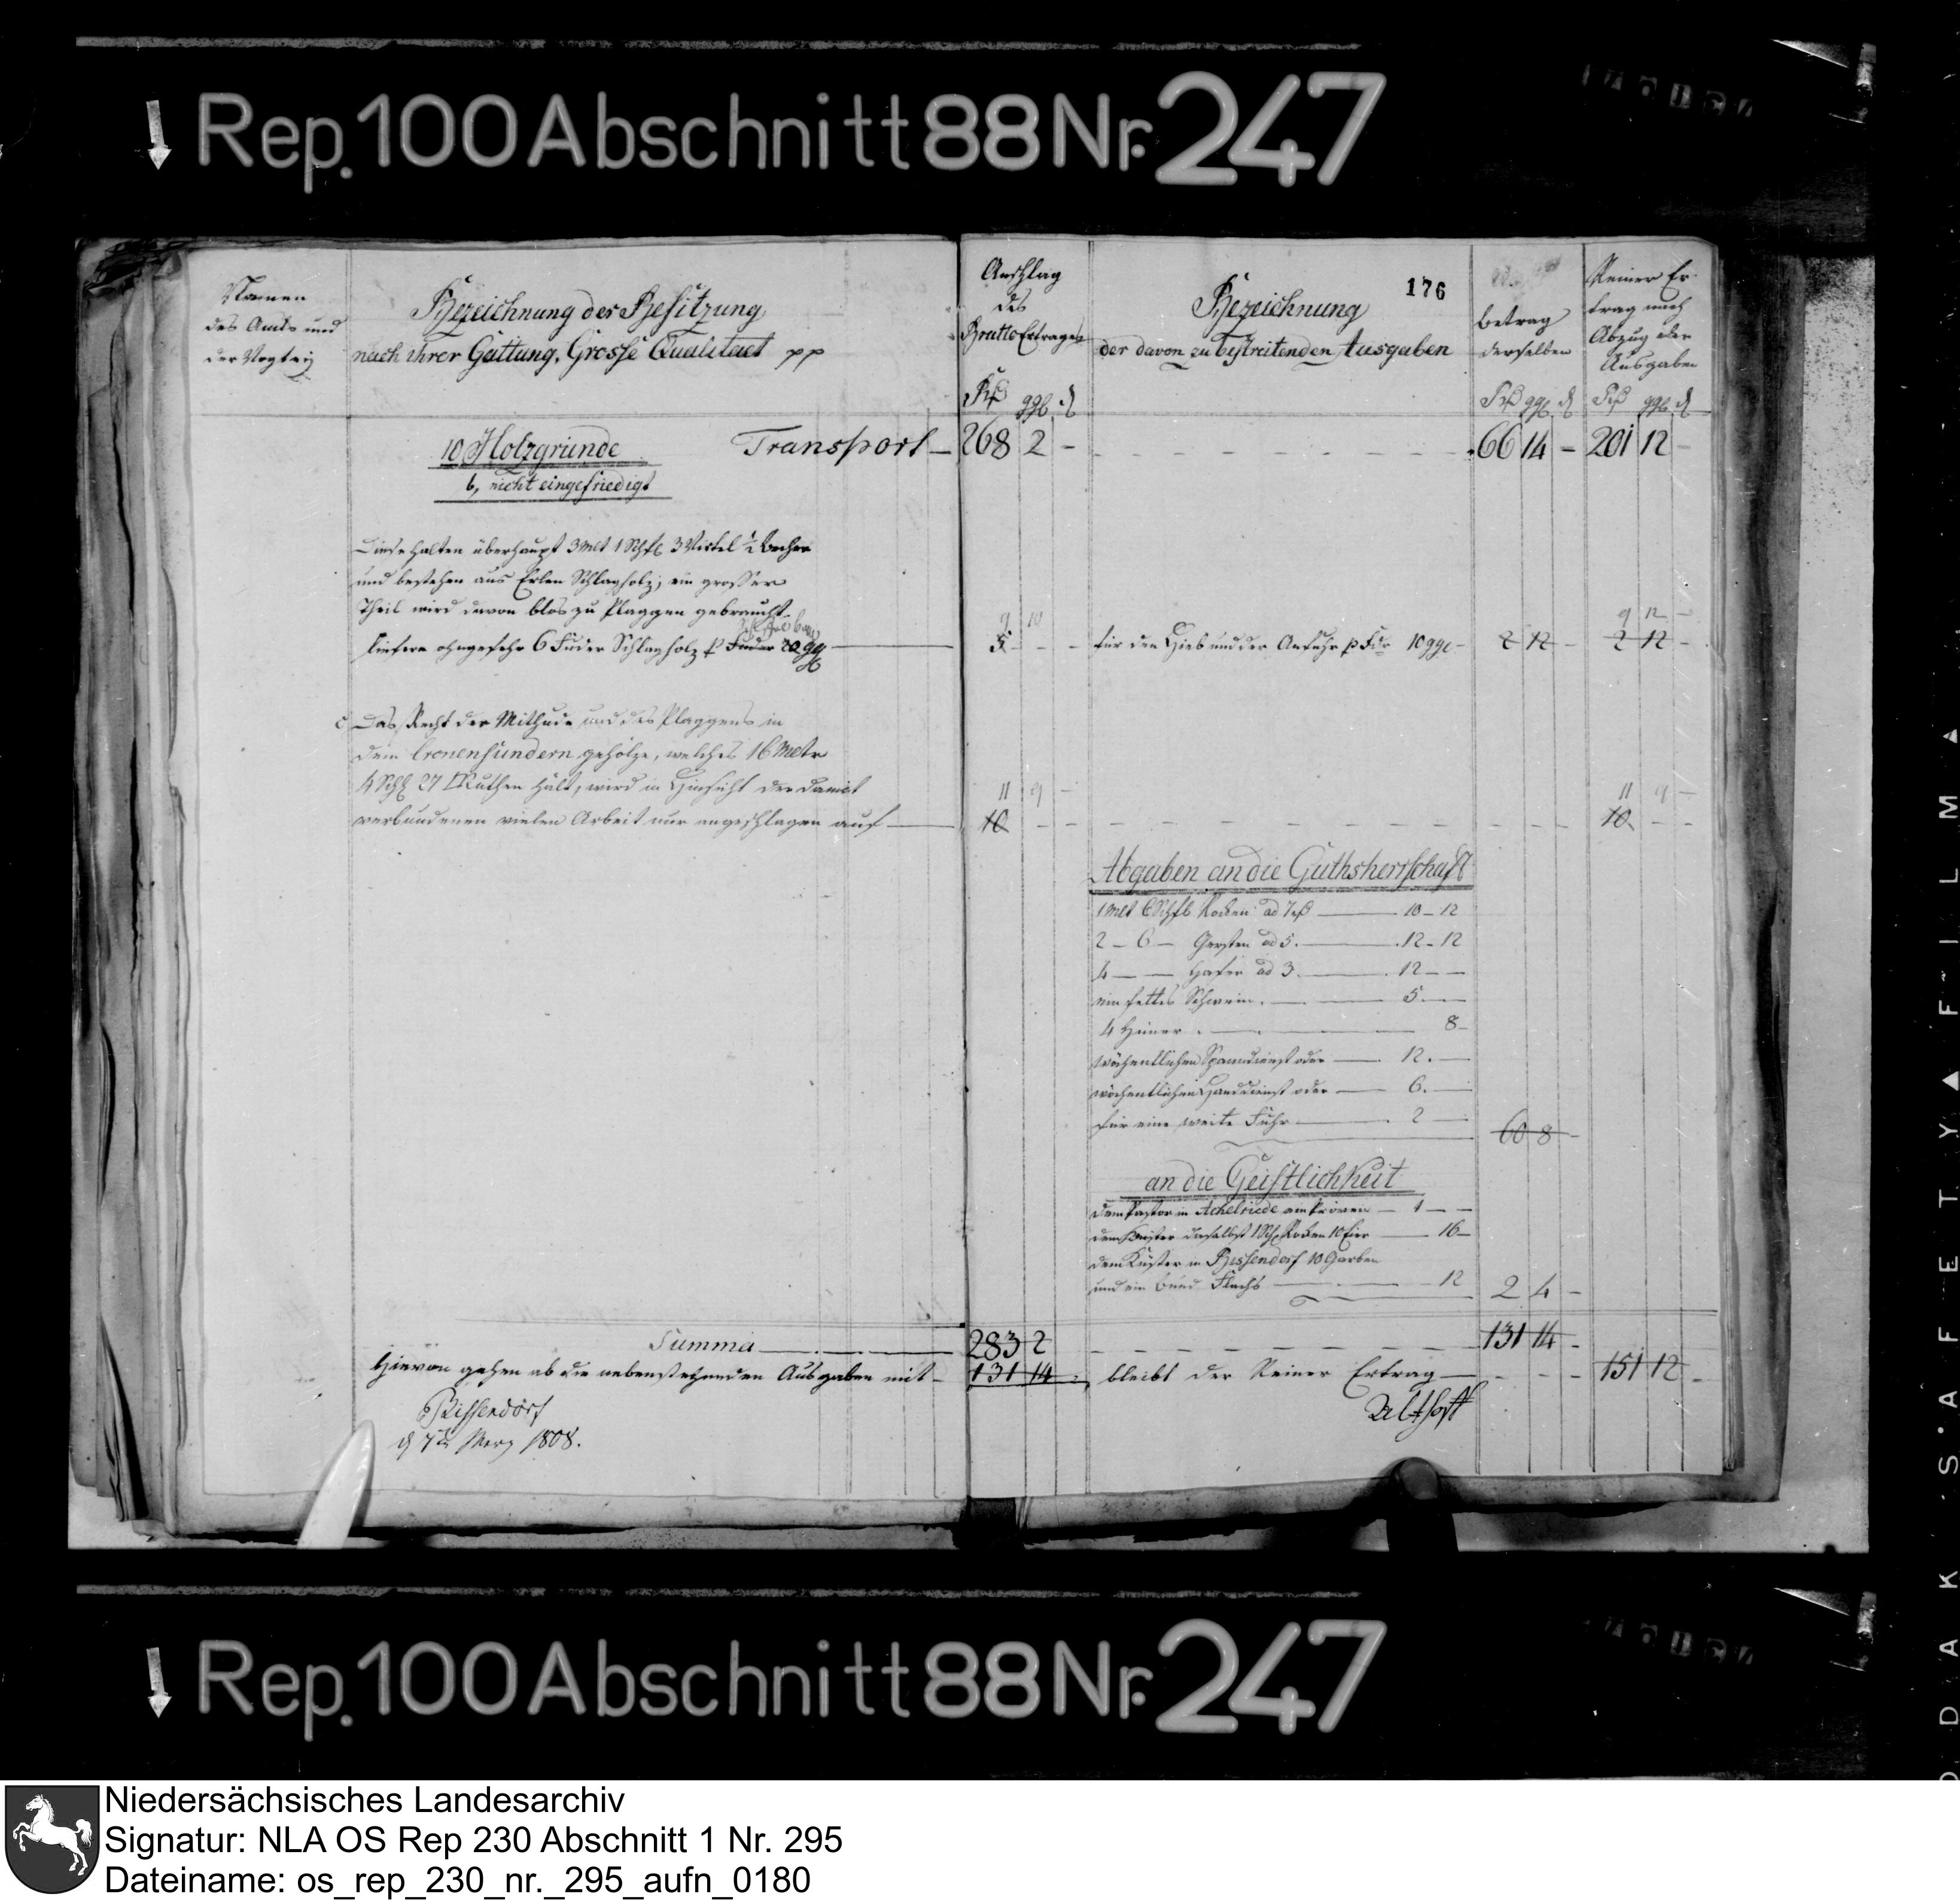 Rep. 100 Abschnitt 88 Nr. 247
Namen
des Amts und
der Vogtey
Bezeichnung der Besitzung
nach ihrer Gattung, Grosse Qualitaet pp
Anschlag
des
Brutto Ertrages
Rtl ggl d
Bezeichnung
der davon zu bestreitenden Ausgaben
176
Betrag
derselben
Rtl ggl d
Reiner Er-
trag nach
Abzug der
Ausgaben
Rtl ggl d
10 Holzgründe Transport — 268 2 - 66 14 - 201 12 -
b, nicht eingefriedigt
Diese halten überhaupt 3 Mlt 1 Schfl 3 Virtel ½ Becher
und bestehen aus Erlen Schlagholz; ein grosser
Theil wird davon blos zu Plaggen gebraucht
9 12 -
liefern ohngefehr 6 Fuder Schlagholz p Fuder 20 ggl — 5 - - für den Hieb und der Anfuhr p Fdr 10 ggl - 2 12 - 2 12 -
c Das Recht der Mithude und des Plaggens in
dem Cronensundern gehölze, welches 16 Mltr
4 Schfl 27 Ruthen hält, wird in Hinsicht der damit
11 9 - 11 9 -
verbundenen vielen Arbeit nur angeschlagen auf — 10 - - 10 - -
Abgaben an die Guthsherrschaft
1 Mlt 6 Schfl Rocken ad 7 Rtl — 10 - 12
2 - 6 - Gersten ad 5. — 12 - 12
4 — — Hafer ad 3. — 12 - -
ein fettes Schwein. — 5. —
4 Hüner. — 8 -
wöchentlichen Spanndienst oder — 12. —
wöchentlichen Handdienst oder — 6. —
für eine weite Fuhr — 2 —
60 8 -
an die Geistlichkeit
dem Pastor in Achelriede am Pröven — 1 - -
dem Küster daselbst 1 Schfl Rocken 10 Eier — 16 -
dem Küster in Bissendorf 10 Garben
und ein Bund Flachs — 12 2 4 -
Summa — 283 2 131 14 -
Hievon gehen ab die nebenstehenden Ausgaben mit - 131 14 - bleibt der Reiner Ertrag — 151 12 -
Bissendorf
d 7t Merz 1808.
Althoff
Rep. 100 Abschnitt 88 Nr. 247
Niedersächsisches Landesarchiv
Signatur: NLA OS Rep 230 Abschnitt 1 Nr. 295
Dateiname: os_rep_230_nr._295_aufn_0180